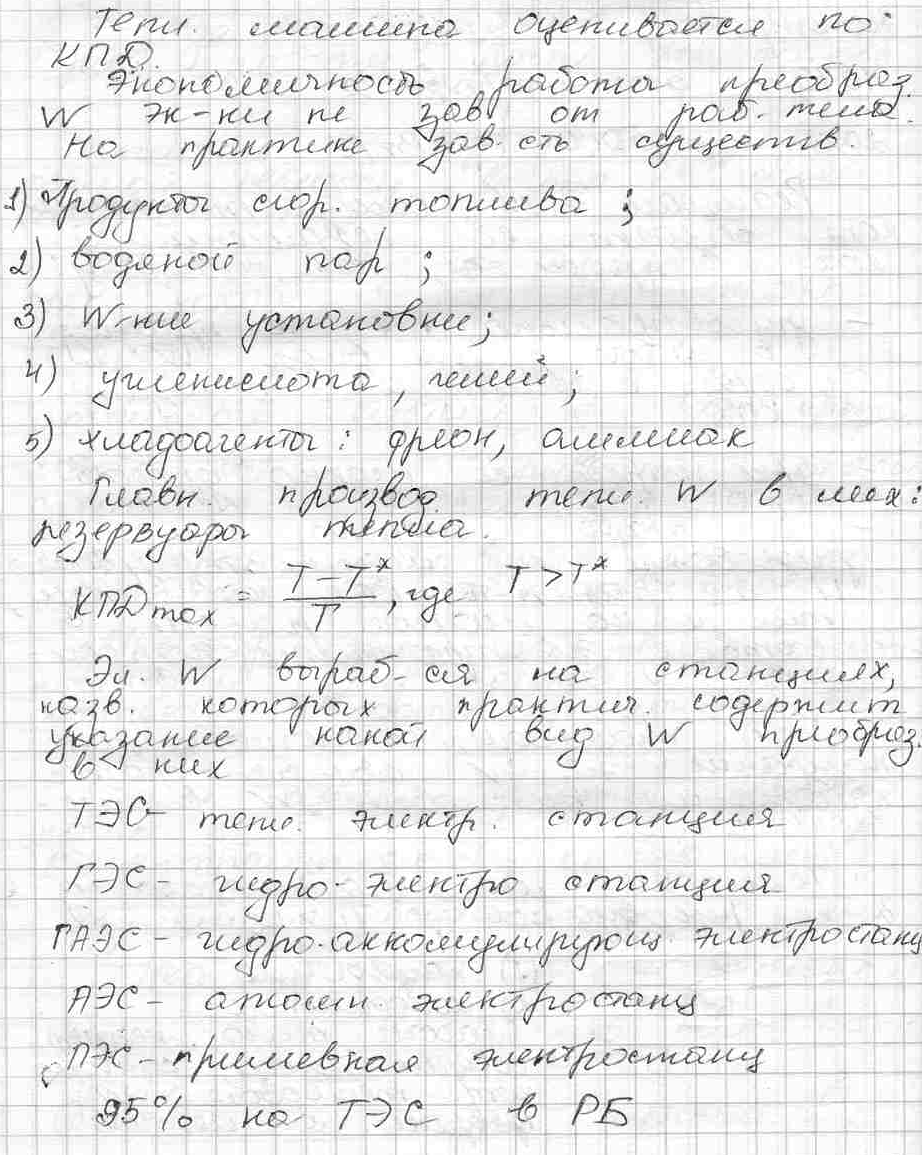 Тепл. машина оценивается по
КПД.
Экономичность работы преобраз.
W эк-ки не зав. от раб. тела.
На практике зав-сть существ.
1) Продукты сгор. топлива;
2) водяной пар;
3) W-кие установки;
4) углекислота, гелий;
5) хладоагенты: фреон, аммиак
Главн. производ. тепл. W в мех:
резервуары тепла.
КПДmax = (T – Tˣ)/T, где T > Tˣ
Эл. W выраб-ся на станциях,
назв. которых практич. содержит
указание какой вид W преобраз.
в них
ТЭС – тепл. электр. станция
ГЭС – гидро-электро станция
ГАЭС – гидро-аккомулирующ. электростанц
АЭС – атомн. электростанц
ПЭС – приливная электростанц
95% на ТЭС в РБ